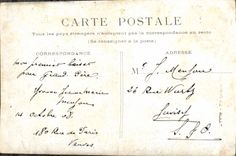 CARTE POSTALE
Tous les pays étrangers n'acceptent pas la correspondance au recto
(Se renseigner à la poste)
CORRESPONDANCE
mon premier baiser
pour Grand Père
14 octobre
180 Rue de Paris
Vanves
ADRESSE
Mr J.
26 Rue Wurtz
Juvisy
S. & O.